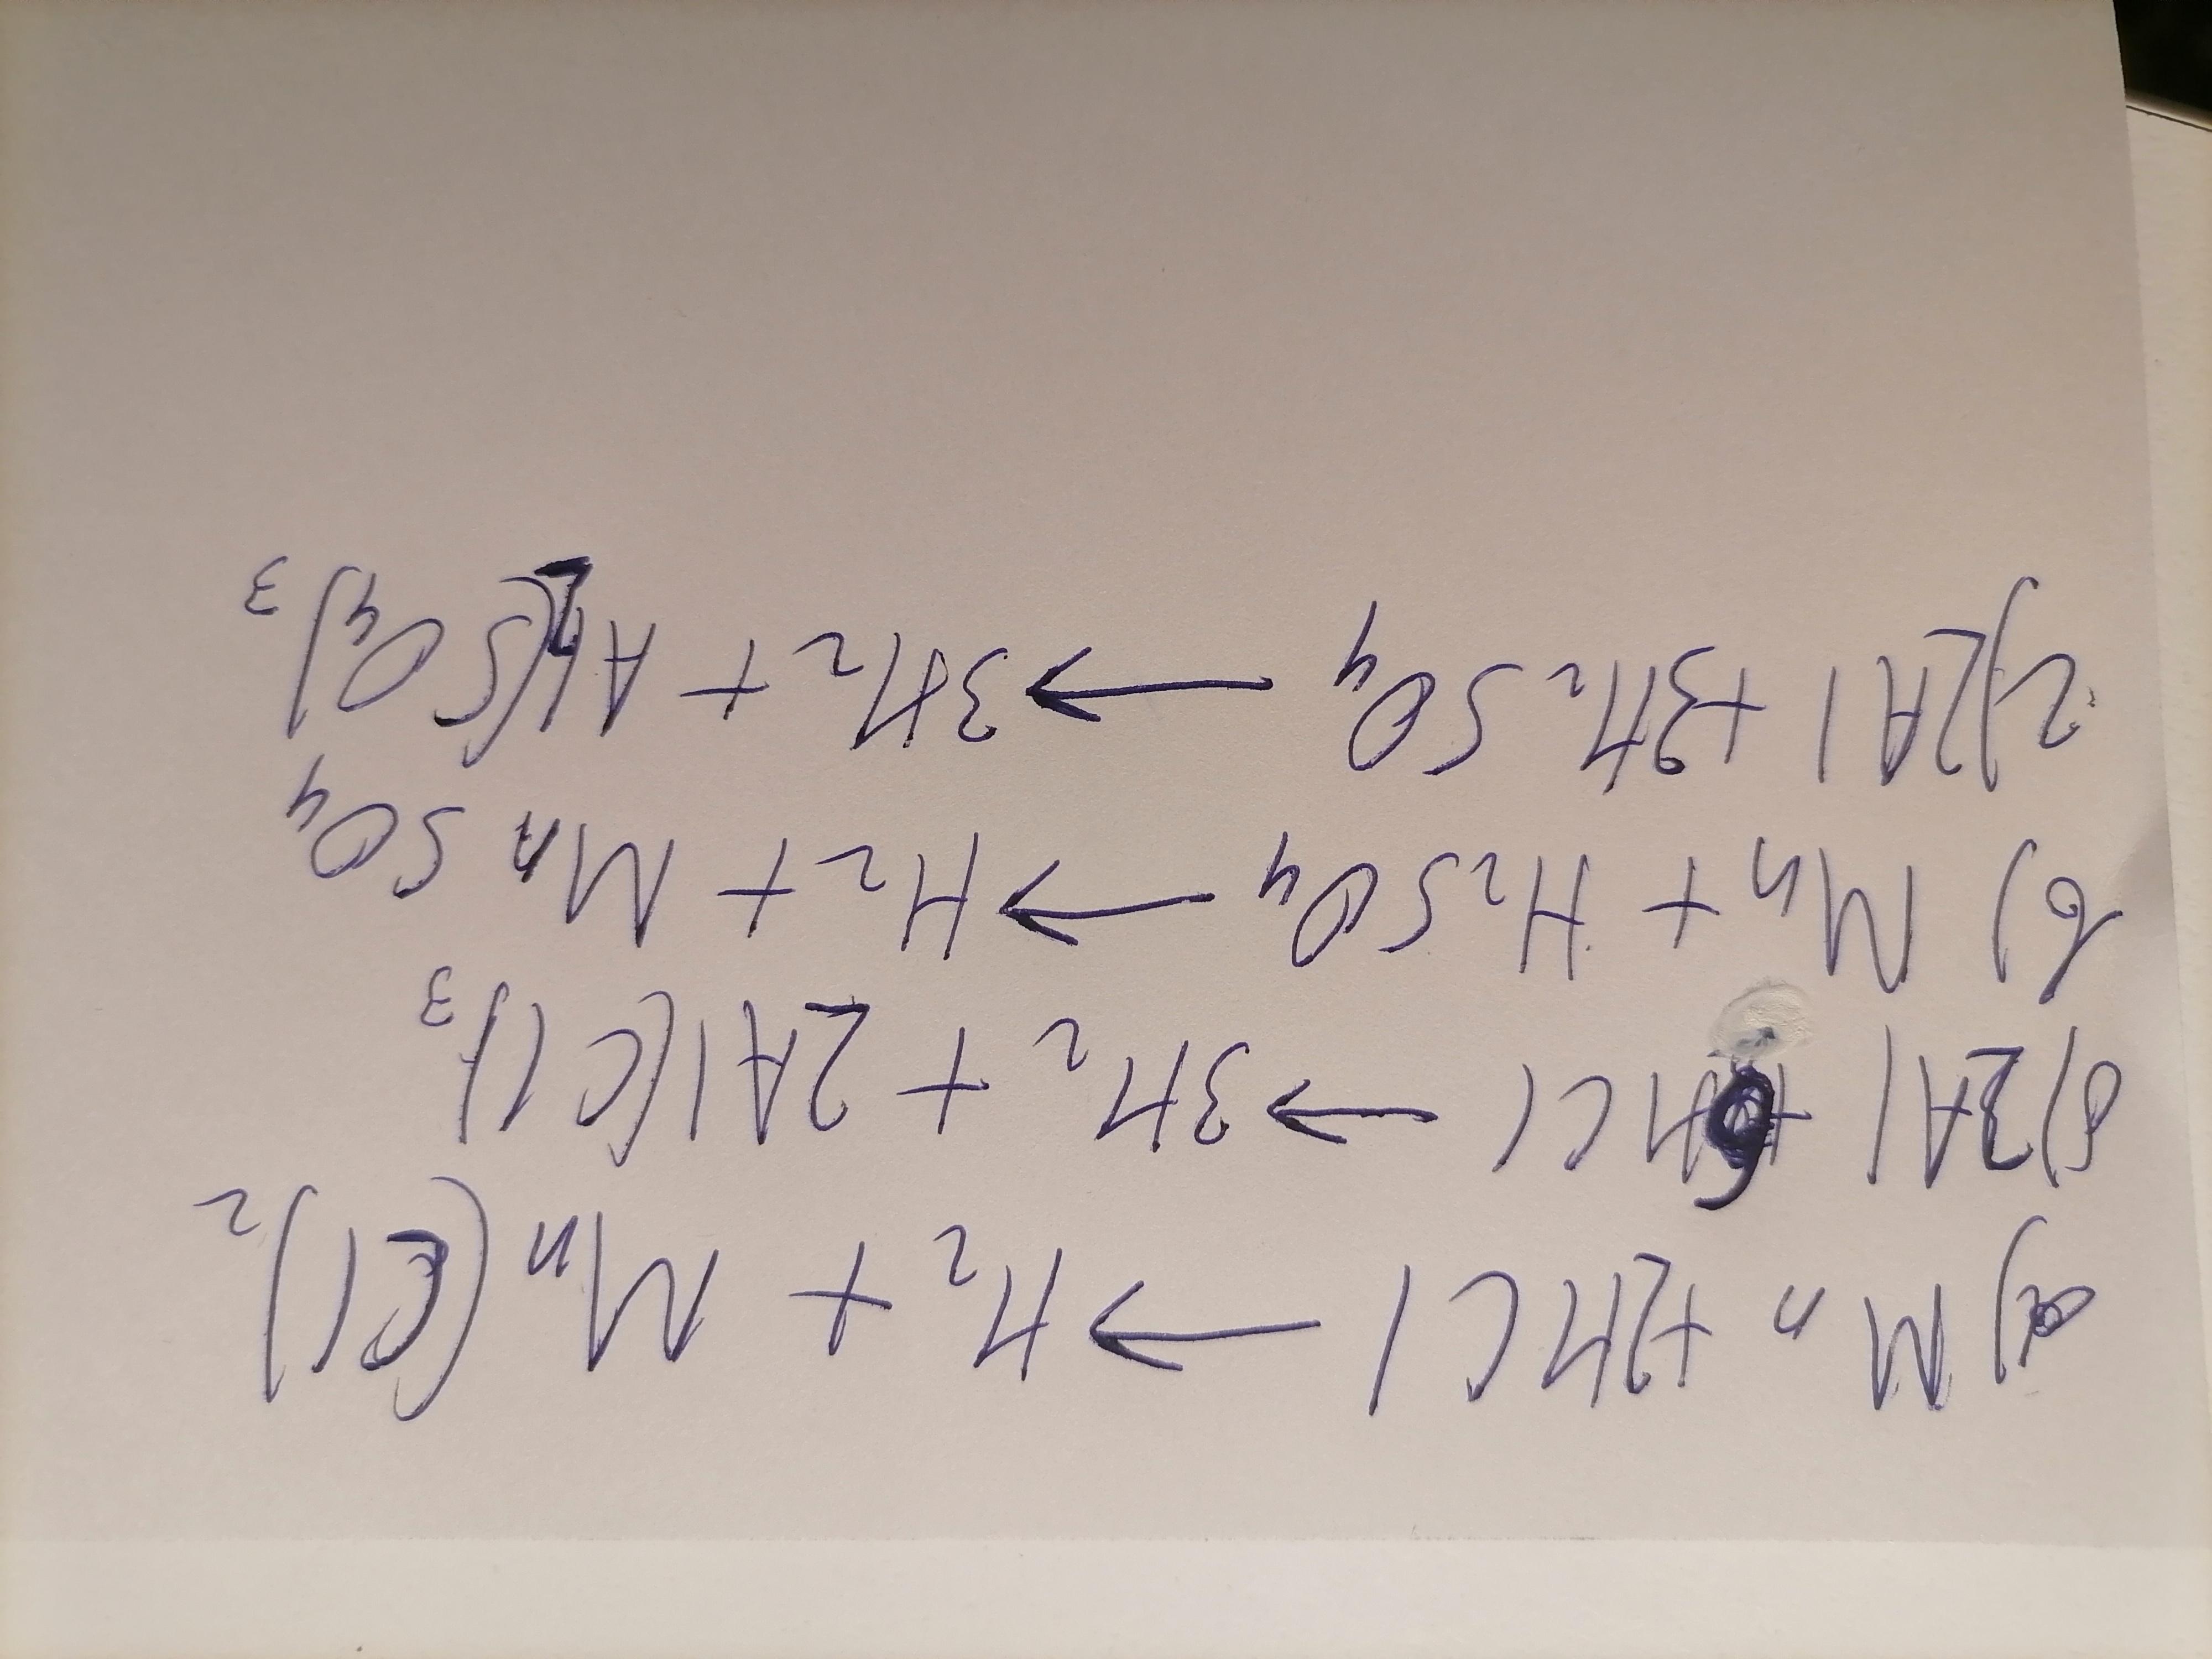 а) Mn + 2HCl → H₂ + Mn(Cl)₂
б) 2Al + 6HCl → 3H₂ + 2Al(Cl)₃
в) Mn + H₂SO₄ → H₂ + MnSO₄
г) 2Al + 3H₂SO₄ → 3H₂ + Al₂(SO₄)₃